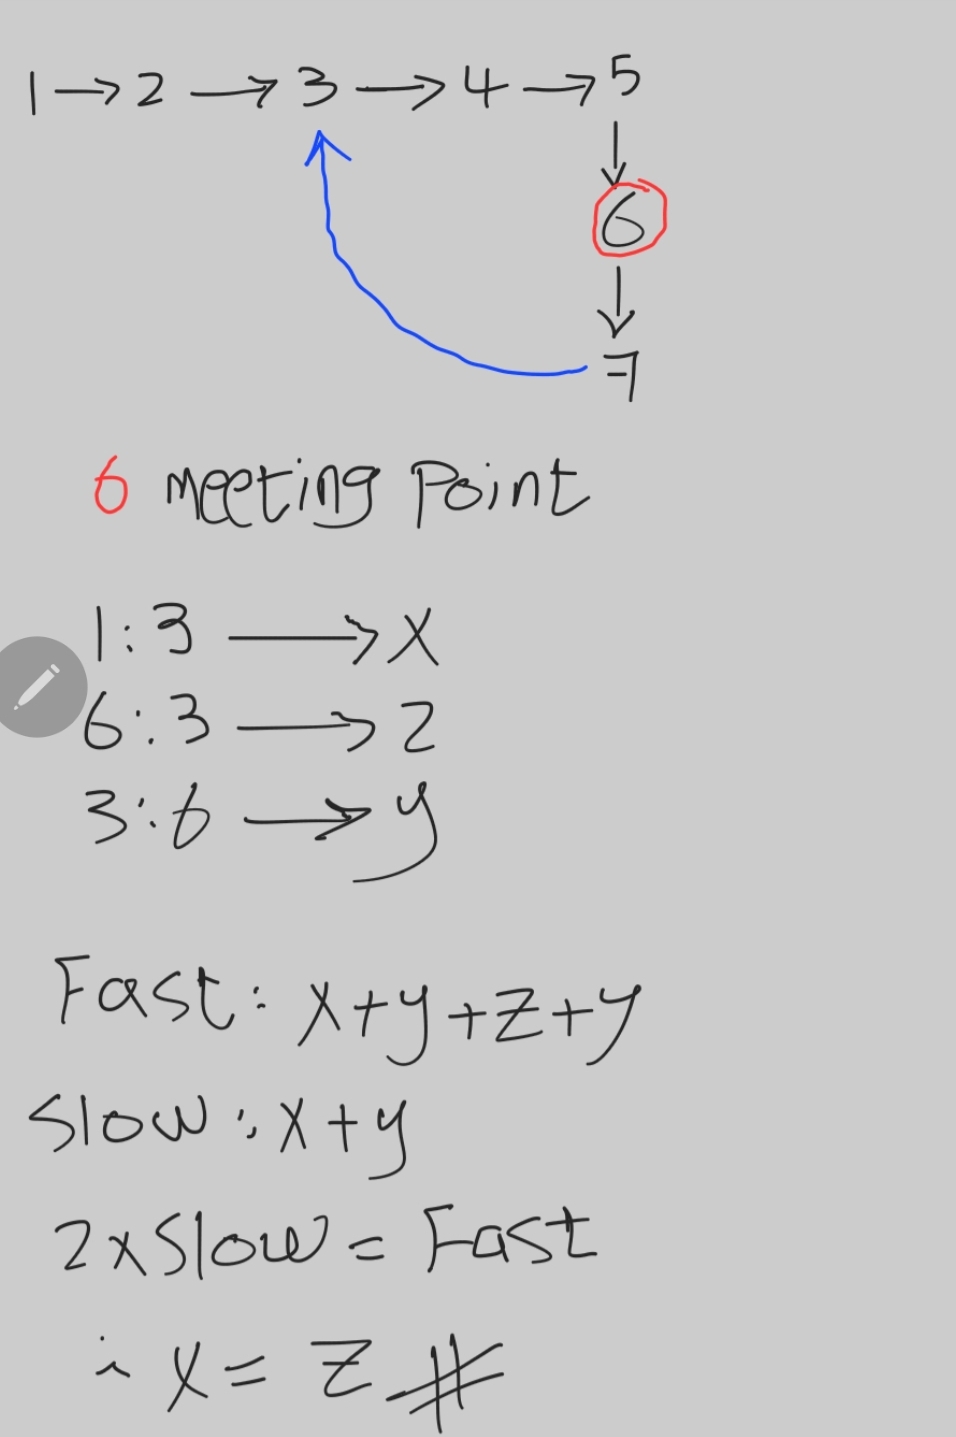 1 → 2 → 3 → 4 → 5
6
7
6 Meeting Point
1:3 → X
6:3 → Z
3:6 → y
Fast: X+y+Z+y
Slow: X+y
2xSlow = Fast
∴ X = Z #